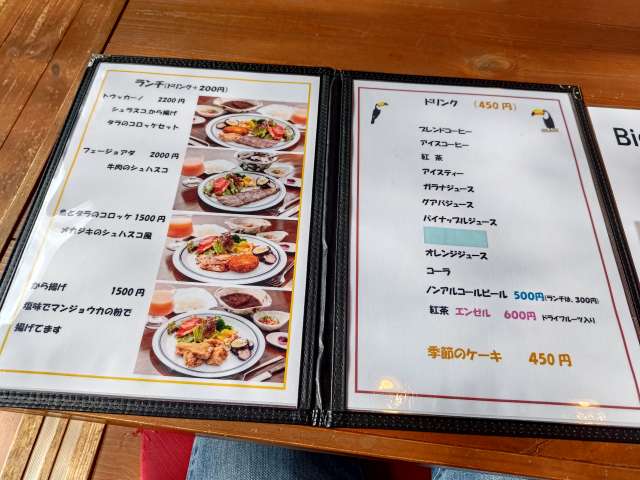 ランチ(ドリンク+200円)
トゥッカーノ 2200円
シュラスコ,から揚げ
タラのコロッケセット
フェージョアダ 2000円
牛肉のシュハスコ
とタラのコロッケ 1500円
メカジキのシュハスコ風
から揚げ 1500円
塩味でマンジョウカの粉で
揚げてます
ドリンク (450円)
ブレンドコーヒー
アイスコーヒー
紅 茶
アイスティー
ガラナジュース
グアバジュース
パイナップルジュース
オレンジジュース
コーラ
ノンアルコールビール 500円(ランチは、300円)
紅茶 エンゼル 600円 ドライフルーツ入り
季節のケーキ 450円